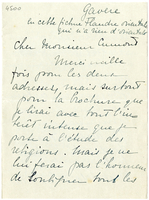 4500
Gavere
en cette fichue Flandre orientale
qui n'a rien d'oriental
Cher Monsieur
Merci mille
fois pour les deux
adresses, mais surtout
pour la brochure que
je lirai avec tout l'in-
térêt intense que je
porte à l'étude des
religions. Mais je ne
lui ferai pas l'honneur
de tous les